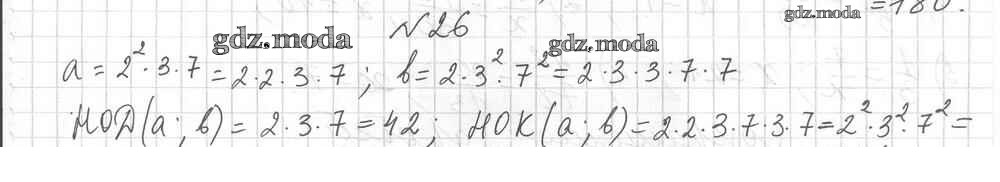 gdz.moda =180.
№26
gdz.moda gdz.moda
a = 2²·3·7 = 2·2·3·7; b = 2·3²·7² = 2·3·3·7·7
НОД(a; b) = 2·3·7 = 42; НОК(a; b) = 2·2·3·7·3·7 = 2²·3²·7² =